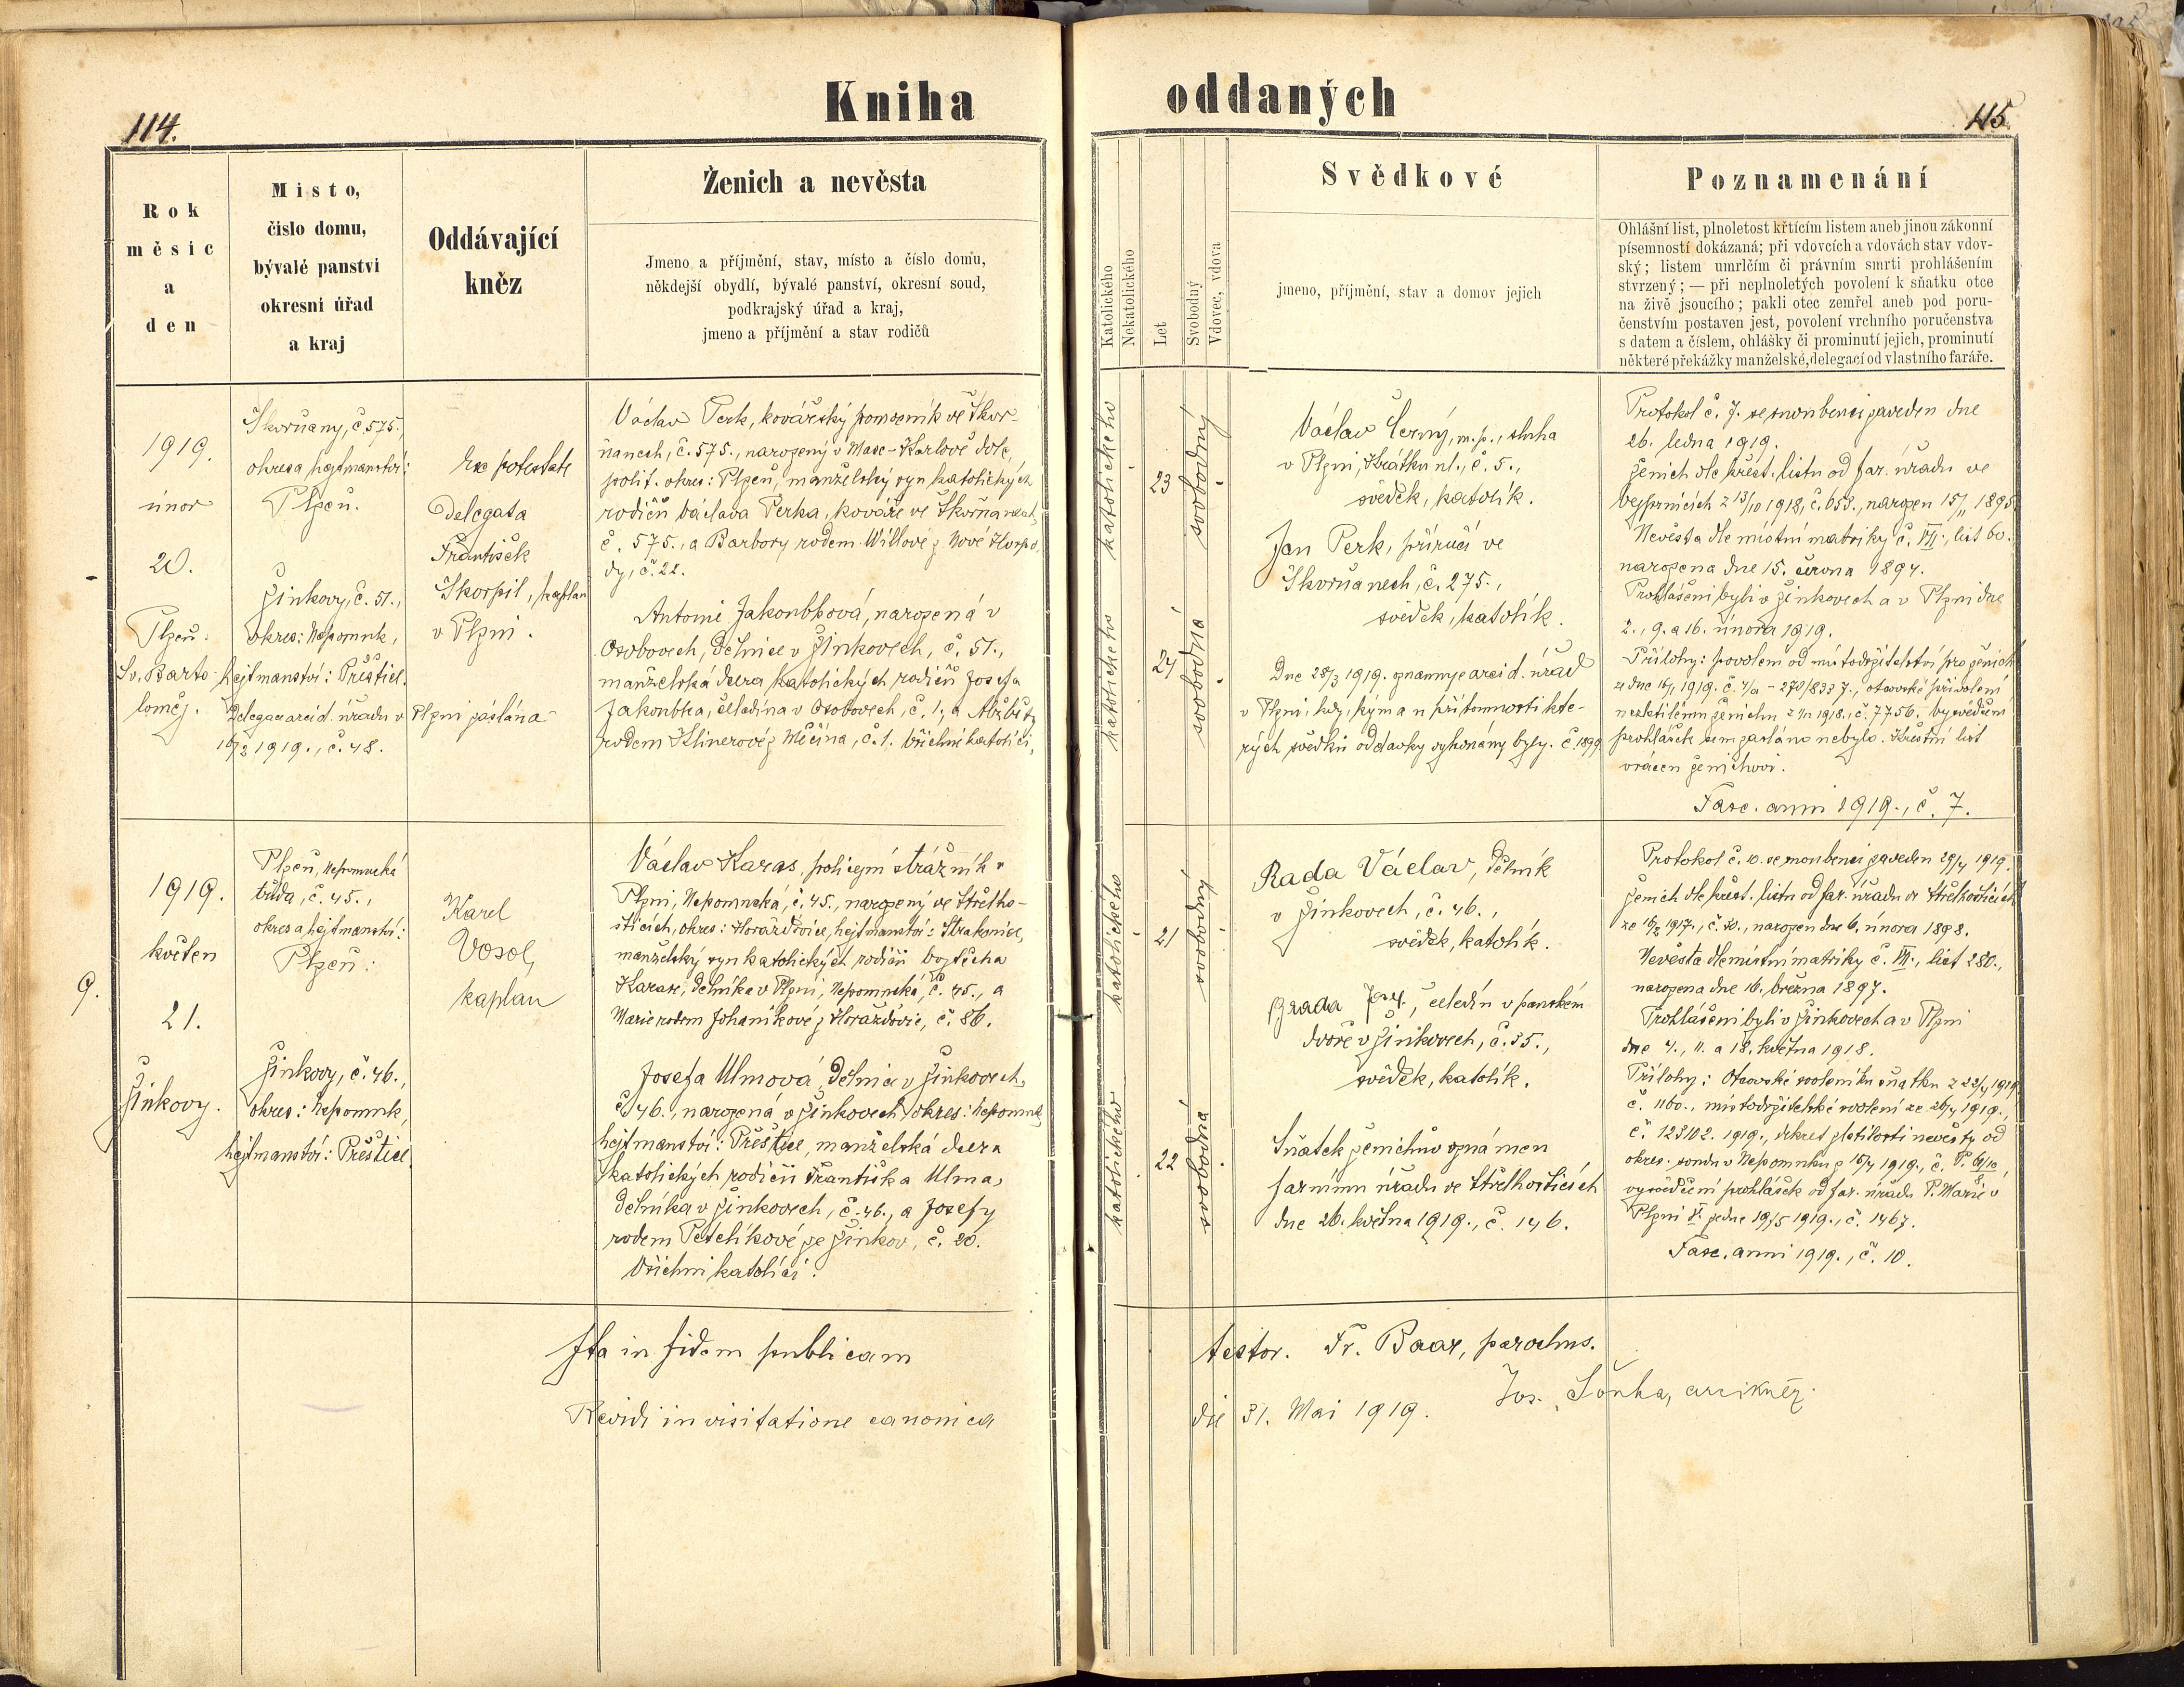 Kniha
oddaných
114.
115.
Rok
měsíc
a
den
Místo,
číslo domu,
bývalé panství
okresní úřad
a kraj
Oddávající
kněz
Ženich a nevěsta
Jmeno a příjmění, stav, místo a číslo domu,
někdejší obydlí, bývalé panství, okresní soud,
podkrajský úřad a kraj,
jmeno a příjmění a stav rodičů
Katolického
Nekatolického
Let
Svobodný
Vdovec, vdova
Svědkové
jmeno, příjmění, stav a domov jejich
Poznamenání
Ohlášní list, plnoletost křtícím listem aneb jinou zákonní
písemností dokázaná; při vdovcích a vdovách stav vdov-
ský; listem umrlčím či právním smrti prohlášením
stvrzený; — při neplnoletých povolení k sňatku otce
na živě jsoucího; pakli otec zemřel aneb pod poru-
čenstvím postaven jest, povolení vrchního poručenstva
s datem a číslem, ohlášky či prominutí jejich, prominutí
některé překážky manželské, delegací od vlastního faráře.
1919.
únor
20.
Plzeň.
Sv. Barto-
loměj.
Škvrňany, č. 575.,
okres a hejtmanství:
Plzeň.
Žinkovy, č. 51.,
okres: Nepomuk,
hejtmanství: Přeštice.
Delegace arcid. úřadu v Plzni zaslána
16/2 1919., č. 48.
Exe potestate
Delegata
František
Škorpil, kaplan
v Plzni.
Václav Perk, kovářský pomocník ve Škvr-
ňanech, č. 575., narozený v Karlově dole,
polit. okres: Plzeň, manželský syn katolických
rodičů Václava Perka, kováře ve Škvrňanech,
č. 575., a Barbory rodem Willové z Nové Hospo-
dy, č. 22.
Antonie Jakoubková, narozená v
Osobovech, dělnice v Žinkovech, č. 51.,
manželská dcera katolických rodičů Josefa
Jakoubka, čeledína v Osobovech, č. 1., a Alžběty
rodem Klinerové z Měčína, č. 1. Všichni katolíci.
katolického
23
svobodný
katolického
24
svobodná
Václav Černý, m. p., sluha
v Plzni, Krátká ul., č. 5.,
svědek, katolík.
Jan Perk, příručí ve
Škvrňanech, č. 275.,
svědek, katolík.
Dne 28/3 1919. oznamuje arcid. úřad
v Plzni, kdy, kým a u přítomnosti kte-
rých svědků oddavky vykonány byly. č. 1899
Protokol č. 7. se snoubenci zaveden dne
26. ledna 1919.
Ženich dle křest. listu od far. úřadu ve
Vejprnicích z 13/10 1918, č. 653., narozen 15/11 1895.
Nevěsta dle místní matriky č. VII., list 60.
narozena dne 15. června 1894.
Prohlášeni byli v Žinkovech a v Plzni dne
2., 9. a 16. února 1919.
Přílohy: povolení od místodržitelství pro ženicha
č. 7756. vysvědčení
prohlášek sem zasláno nebylo. Křestní list
vrácen ženichovi.
Fasc. anni 1919., č. 7.
9.
1919.
květen
21.
Žinkovy.
Plzeň, Nepomucká
třída, č. 45.,
okres a hejtmanství:
Plzeň.
Žinkovy, č. 46.,
okres: Nepomuk,
hejtmanství: Přeštice.
Karel
Vosol,
kaplan
Václav Karas, policejní strážník v
Plzni, Nepomucká, č. 45., narozený ve Střelho-
šticích, okres: Horažďovice, hejtmanství: Strakonice,
manželský syn katolických rodičů Vojtěcha
Karase, dělníka v Plzni, Nepomucká, č. 45., a
Marie rodem Johaníkové z Horažďovic, č. 86.
Josefa Ulmová, dělnice v Žinkovech,
č. 46., narozená v Žinkovech, okres: Nepomuk,
hejtmanství: Přeštice, manželská dcera
katolických rodičů Františka Ulma,
dělníka v Žinkovech, č. 46., a Josefy
rodem Petelíkové ze Žinkov, č. 20.
Všichni katolíci.
katolického
21
svobodný
katolického
22
svobodná
Rada Václav, dělník
v Žinkovech, č. 46.,
svědek, katolík.
Brada Jos., čeledín v panském
dvoře v Žinkovech, č. 35.,
svědek, katolík.
Sňatek ženichův oznámen
farnímu úřadu ve Střelhošticích
dne 26. května 1919., č. 146.
Protokol č. 10. se snoubenci zaveden 29/4 1919.
Ženich dle křest. listu od far. úřadu ve Střelhošticích
ze 16/2 1917., č. 30., narozen dne 6. února 1898.
Nevěsta dle místní matriky č. VII., list 280.,
narozena dne 16. března 1897.
Prohlášeni byli v Žinkovech a v Plzni
dne 4., 11. a 18. května 1918.
Přílohy: Otcovské svolení ku sňatku z 22/4 1919
č. 1160., místodržitelské svolení ze 26/4 1919.,
č. 123102. 1919., dekret zletilosti nevěsty od
okres. soudu v Nepomuku z 15/4 1919., č. P. 61/10,
vysvědčení prohlášek od far. úřadu P. Marie v
Plzni ze dne 19/5 1919., č. 1467.
Fasc. anni 1919., č. 10.
Ita in fidem publicam
testor. Fr. Baar, parochus.
Revidi in visitatione canonica
die 31. Mai 1919. Jos. Soukal, arcikněz.